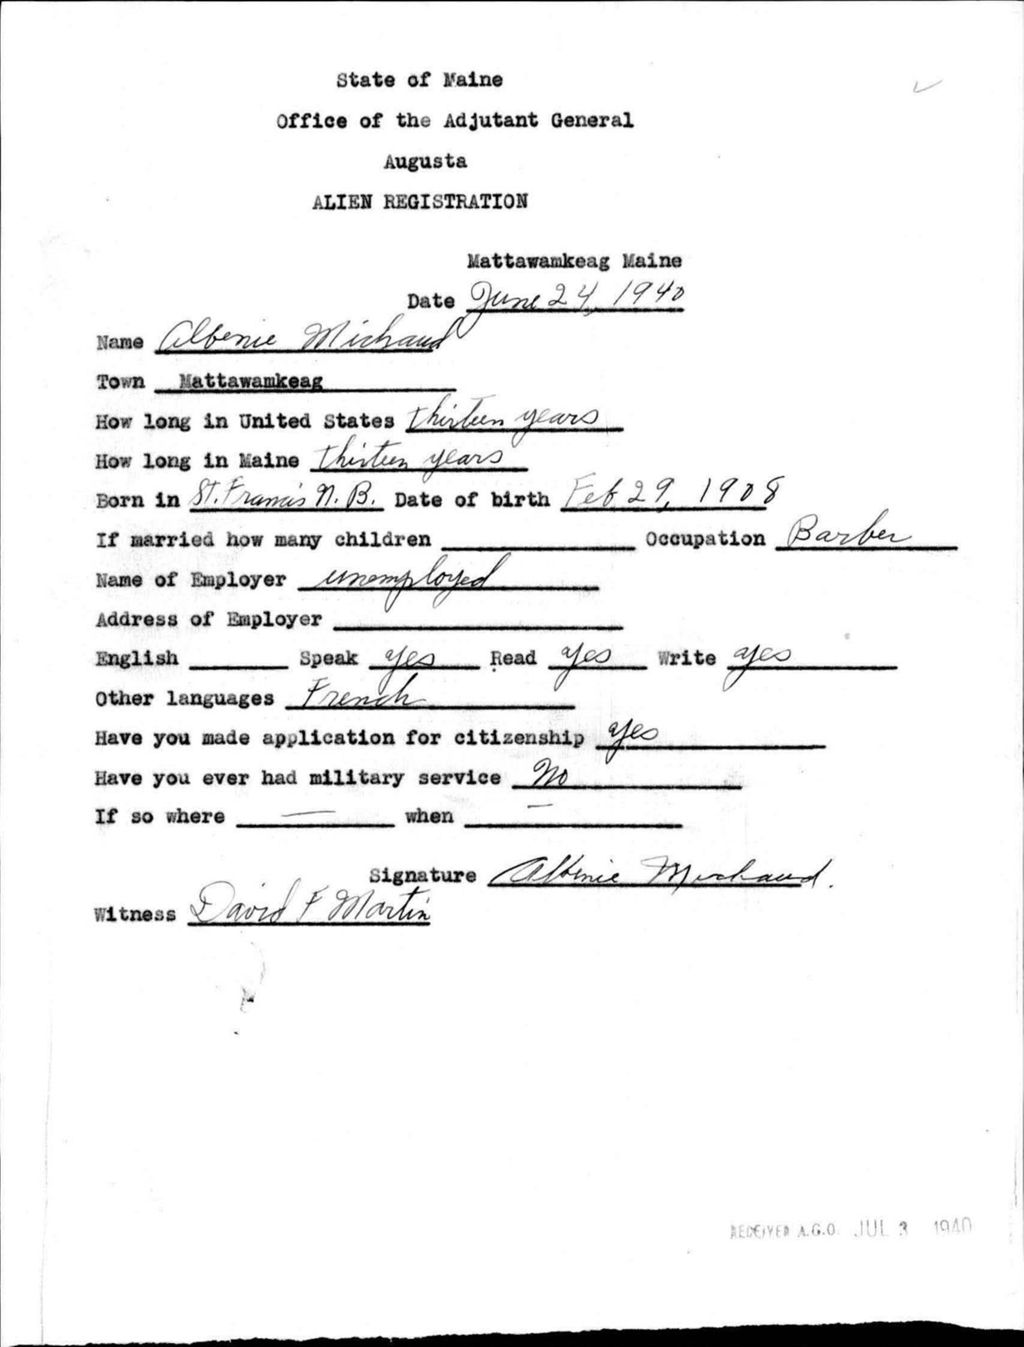 State of Maine
Office of the Adjutant General
Augusta
ALIEN REGISTRATION
Mattawamkeag Maine
Date June 24, 1940
Name Albenie Michaud
Town Mattawamkeag
How long in United States thirteen years
How long in Maine thirteen years
Born in St. Francis N. B. Date of birth Feb 29, 1908
If married how many children Occupation Barber
Name of Employer unemployed
Address of Employer
English Speak yes Read yes Write yes
Other languages French
Have you made application for citizenship yes
Have you ever had military service No
If so where — when —
Signature Albenie Michaud.
Witness David F Martin
RECEIVED A.G.O. JUL 3 1940